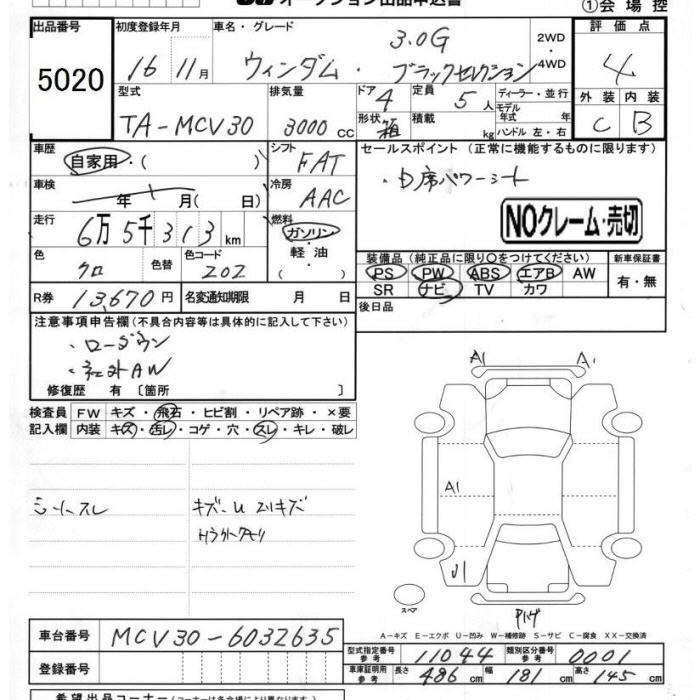 オークション出品申込書
①会場控
出品番号 初度登録年月 車名・グレード 評価点
5020 16 11月 ウィンダム・ブラックセレクション 3.0G 2WD・4WD 4
型式 排気量 ドア 定員 ディーラー・並行 外装 内装
TA-MCV30 3000cc 4 5人 モデル年式 年 C B
形状 箱 積載 kg ハンドル 左・右
車歴 自家用・( ) シフト FAT セールスポイント (正常に機能するものに限ります)
車検 年 月(日) 冷房 AAC ・D席パワーシート
NOクレーム・売切
走行 6万5千313km 燃料 ガソリン・軽油・( )
装備品 (純正品に限り○をつけてください) 新車保証書
色 クロ 色替 色コード 202 PS PW ABS エアB AW 有・無
SR ナビ TV カワ
R券 13,670円 名変通知期限 月 日 後日品
注意事項申告欄 (不具合内容等は具体的に記入して下さい)
・ローダウン
・社外AW
修復歴 有 〔箇所 〕
検査員 FW キズ・飛石・ヒビ割・リペア跡・×要
記入欄 内装 キズ・汚レ・コゲ・穴・スレ・キレ・破レ
A1 A1
シートスレ キズ・U スリキズ
A1
U1
スペア
A－キズ E－エクボ U－凹み W－補修跡 S－サビ C－腐食 XX－交換済
車台番号 MCV30-6032635
型式指定番号 参考 11044 類別区分番号 参考 0001
登録番号 車庫証明用 参考 長さ 486cm 幅 181cm 高さ 145cm
希望出品コーナー (コーナーは各会場により異なります)